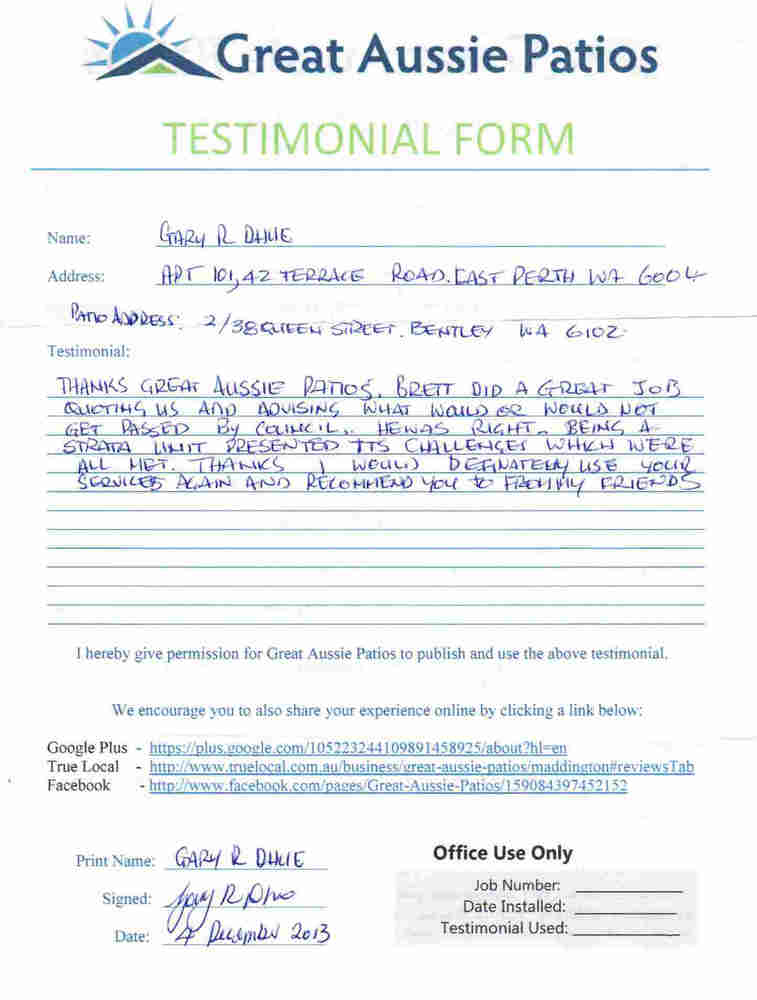 Great Aussie Patios
TESTIMONIAL FORM
Name: GARY R
Address: APT 101, 42 TERRACE ROAD. EAST PERTH WA 6004
PATIO ADDRESS: 2/38 QUEEN STREET. BENTLEY WA 6102.
Testimonial:
THANKS GREAT AUSSIE PATIOS, BRETT DID A GREAT JOB
QUOTING US AND ADVISING WHAT WOULD OR WOULD NOT
GET PASSED BY COUNCIL,. HE WAS RIGHT. BEING A
STRATA UNIT PRESENTED ITS CHALLENGES WHICH WERE
ALL MET. THANKS I WOULD DEFINATELY USE YOUR
SERVICES AGAIN AND RECOMMEND YOU to MY FRIENDS
I hereby give permission for Great Aussie Patios to publish and use the above testimonial.
We encourage you to also share your experience online by clicking a link below:
Google Plus - https://plus.google.com/105223244109891458925/about?hl=en
True Local - http://www.truelocal.com.au/business/great-aussie-patios/maddington#reviewsTab
Facebook - http://www.facebook.com/pages/Great-Aussie-Patios/159084397452152
Print Name: GARY R
Office Use Only
Job Number:
Signed: Gary R
Date Installed:
Date: 4 December 2013
Testimonial Used: